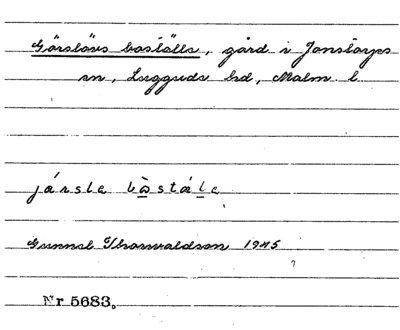 Görslövs boställe, gård i Jonstorps
sn, Luggude hd, Malm. l.
jársle bòstále
Gunnel Thorwaldson 1945
Nr 5683.